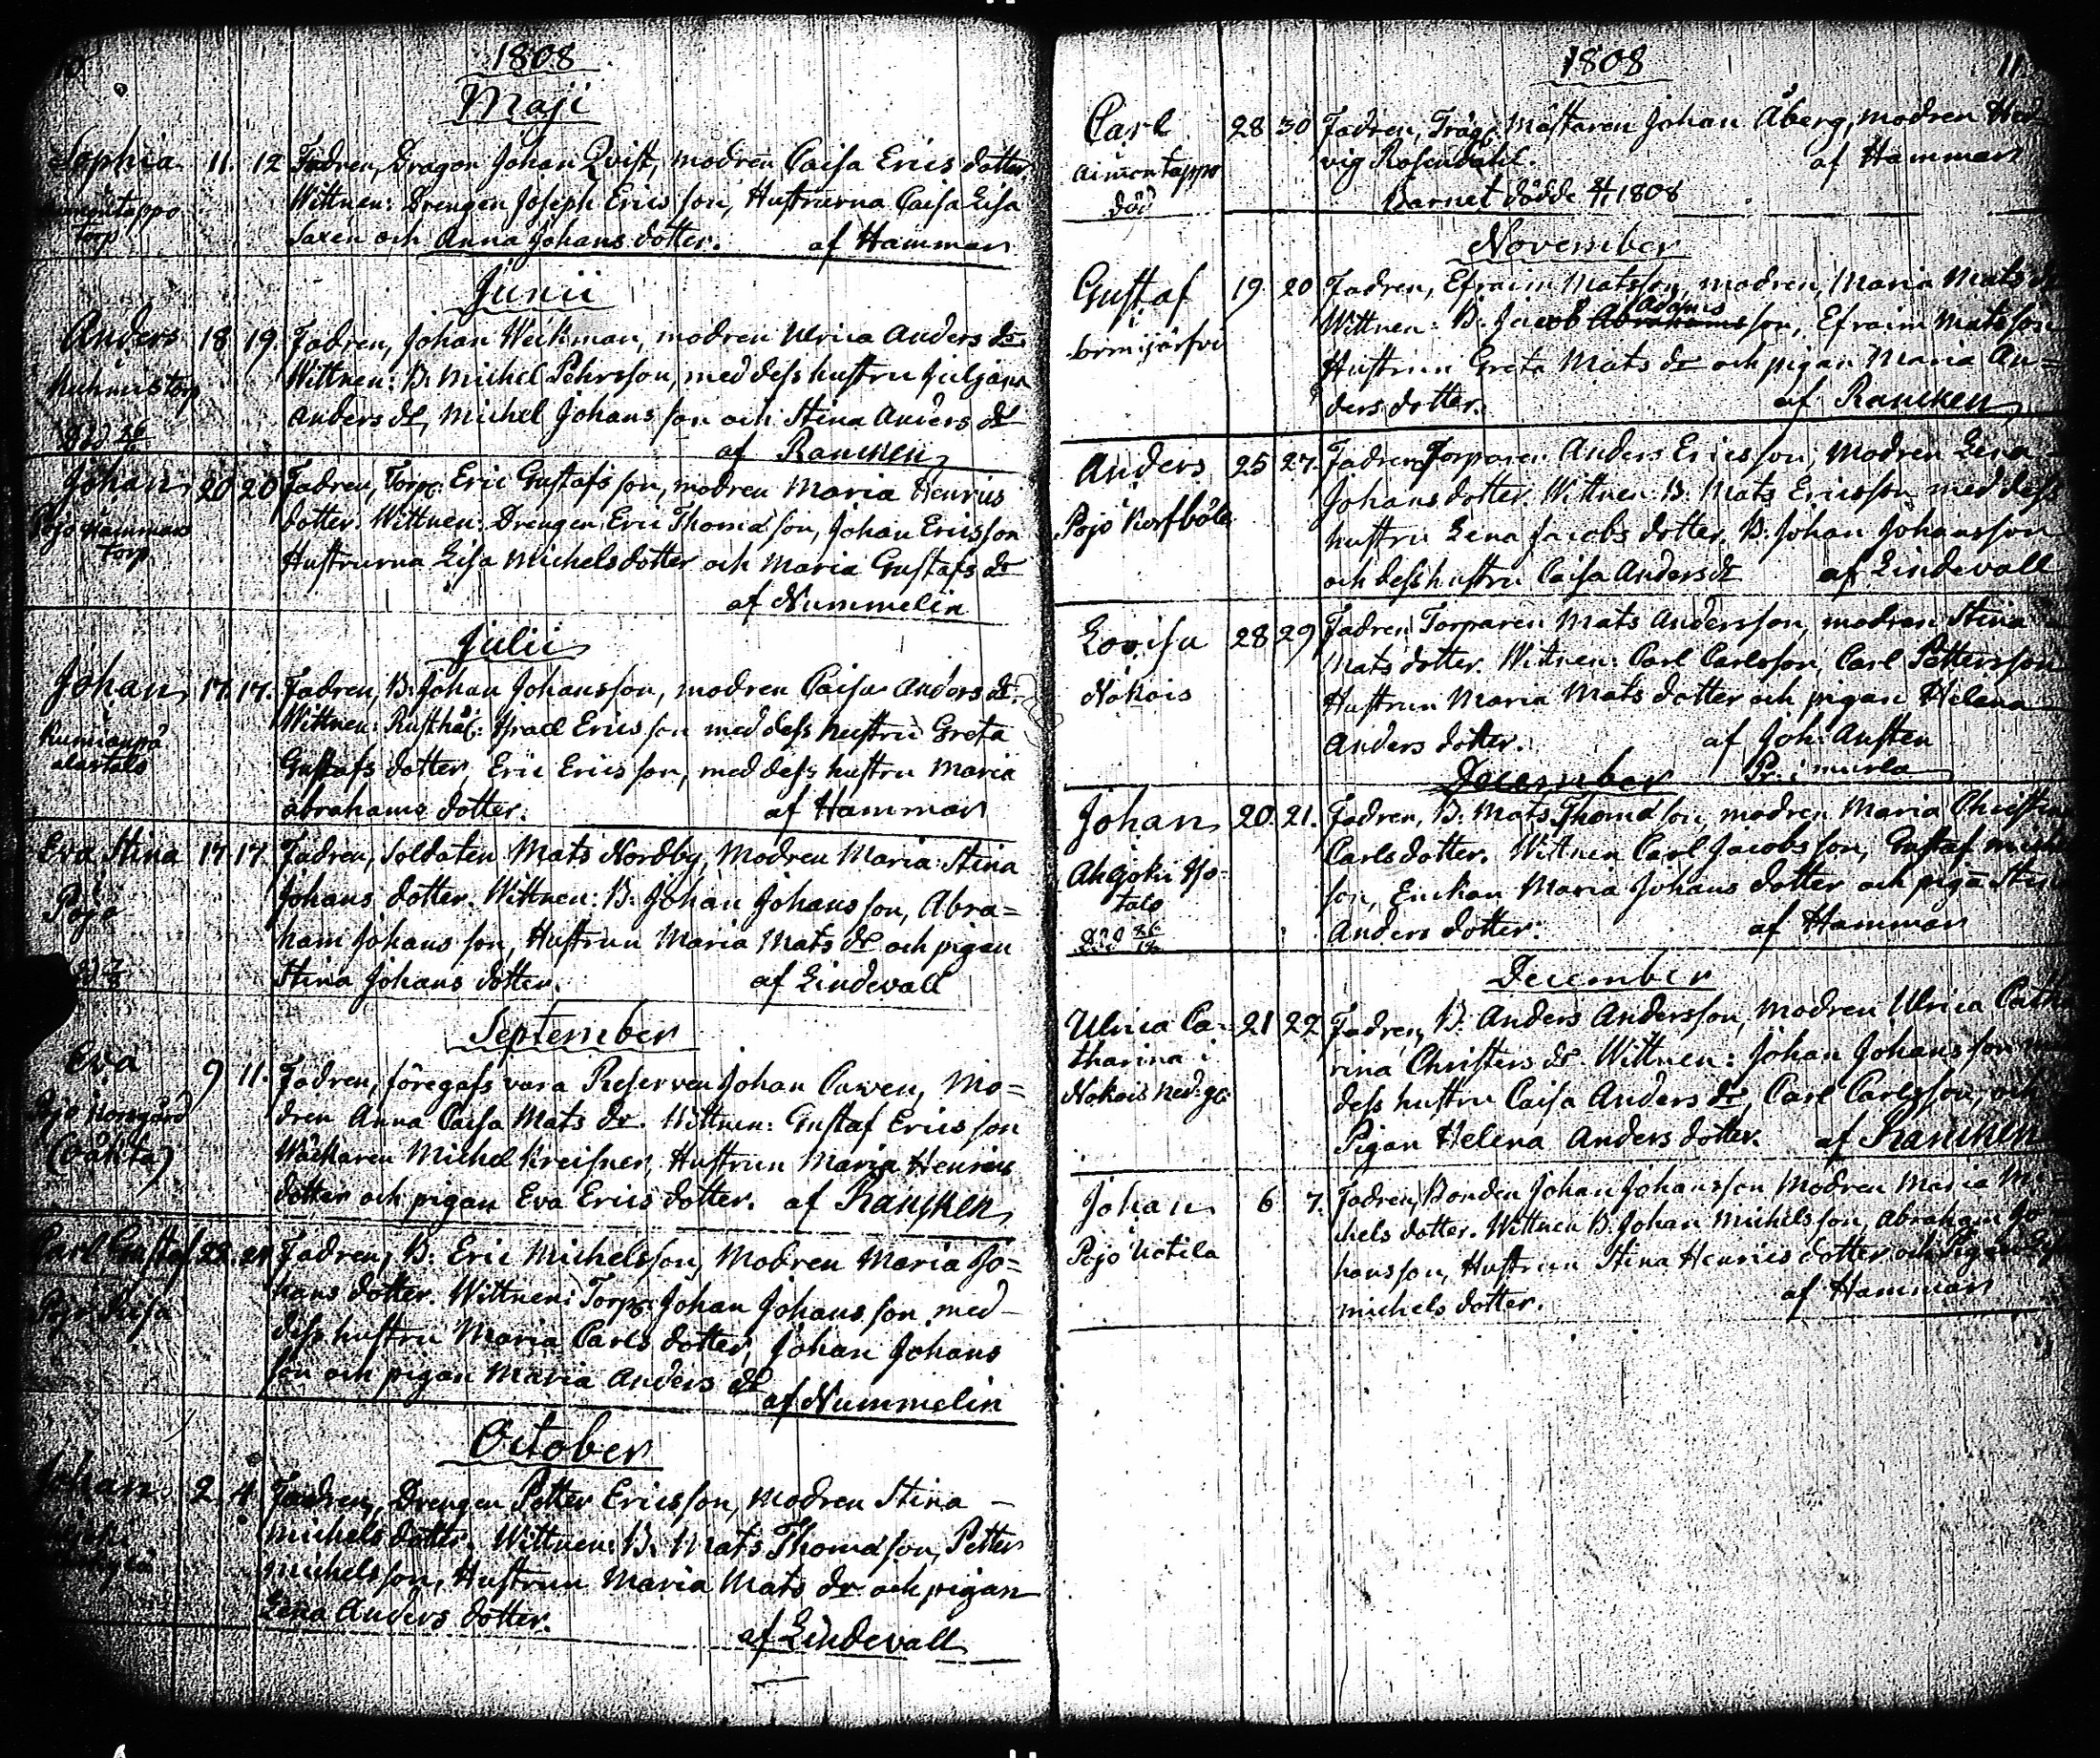 1808
Maji
Sophia 11. 12 Fadren, Dragon Johan Qvist, modren Caisa Erics dotter.
torp
Wittnen: Drengen Joseph Erics son, Hustrurna Caisa Lisa
Saxen och Anna Johans dotter. af Hammar
Junii
Anders 18 19. Fadren, Johan Weckman, modren Ulrica Anders dr
Wittnen: B. Michel Pehrsson, med dess hustru Juljana
Anders dr, Michel Johans son och Stina Anders dr
af Rancken
Johan 20 20 Fadren, Torp: Eric Gustafs son, modren Maria Henrics
Pojo Hammars
torp
dotter. Wittnen: Drengen Eric Thomasson, Johan Ericsson
Hustrurna Lisa Michelsdotter och Maria Gustafs dr
af Nummelin
Julii
Johan 17. 17. Fadren, B. Johan Johansson, modren Caisa Anders dr.
Wittnen: Rusthål: Israel Ericsson med dess hustru Greta
Gustafs dotter, Eric Erics son, med dess hustru Maria
Abrahams dotter. af Hammar
Eva Stina 17 17. Fadren, Soldaten Mats Nordby, Modren Maria Stina
i
Pojo
Johans dotter. Wittnen: B. Johan Johans son, Abra=
ham Johans son, Hustrun Maria Mats dr och pigan
Stina Johans dotter. af Lindevall
September
Eva 9 11. Fadren, föregafs vara Reserven Johan Cawen, Mo=
(oäkta)
dren Anna Caisa Mats dr. Wittnen: Gustaf Erics son
Michel Kreisner, Hustrun Maria Henrics
dotter och pigan Eva Erics dotter. af Rancken
Carl Gustaf 23. 24 Fadren, B. Eric Michelsson, Modren Maria Jo=
hans dotter. Wittnen: Torp: Johan Johans son med
dess hustru Maria Carls dotter, Johan Johans
son och pigan Maria Anders dr
af Nummelin
October
Johan 2. 4 Fadren, Drengen Petter Ericsson, Modren Stina
Michels dotter. Wittnen: B. Mats Thomasson, Petter
Michelsson, Hustrun Maria Mats dr och pigan
Lena Anders dotter.
af Lindevall
1808 11
Carl 28 30 Fadren, Trägs: Mästaren Johan Åberg, modren Hed
aimontappo
död
vig Rosendahl. af Hammar
Barnet dödde 1808
November
Gustaf 19. 20 Fadren, Efraim Matsson, modren, Maria Mats dr
i
Sormijärfvi
Adams
Wittnen: B. Jacob Abrahamsson, Efraim Matsson
Hustrun Greta Mats dr och pigan Maria An=
ders dotter. af Rancken
Anders 25 27. Fadren Torparen Anders Ericsson, Modren Lena
i
Pojo Korfböle
Johans dotter. Wittnen B. Mats Ericsson med dess
hustru Lena Jacobs dotter. B. Johan Johansson
och dess hustru Caisa Anders dr af Lindevall
Lovisa 28 29 Fadren Torparen Mats Andersson, modren Stina
i
Nokois
Mats dotter. Witnen: Carl Carlsson, Carl Pettersson
Hustrun Maria Mats dotter och pigan Helena
Anders dotter. af Joh: Austen
December Pr: i murla
Johan 20. 21. Fadren, B. Mats Thomasson, modren Maria Christina
i
Ahljoki Yjö=
talo
Carls dotter. Witnen Carl Jacobs son, Gustaf Michels
son, Enckan Maria Johans dotter och piga Stina
Anders dotter. af Hammar
December
Ulrica Ca= 21 22 Fadren, B. Anders Andersson, Modren Ulrica Catha
tharina i
Nokois Ned: g:
rina Christers dr. Wittnen: Johan Johans son
dess hustru Caisa Anders dr, Carl Carlsson, och
Pigan Helena Anders dotter. af Rancken
Johan 6. 7. Fadren, Bonden Johan Johansson Modren Maria Mi
i
Pojo Uotila
chels dotter. Wittnen B. Johan Michels son, Abraham Jo
hansson, Hustrun Stina Henrics dotter och Pigan
Michels dotter. af Hammar